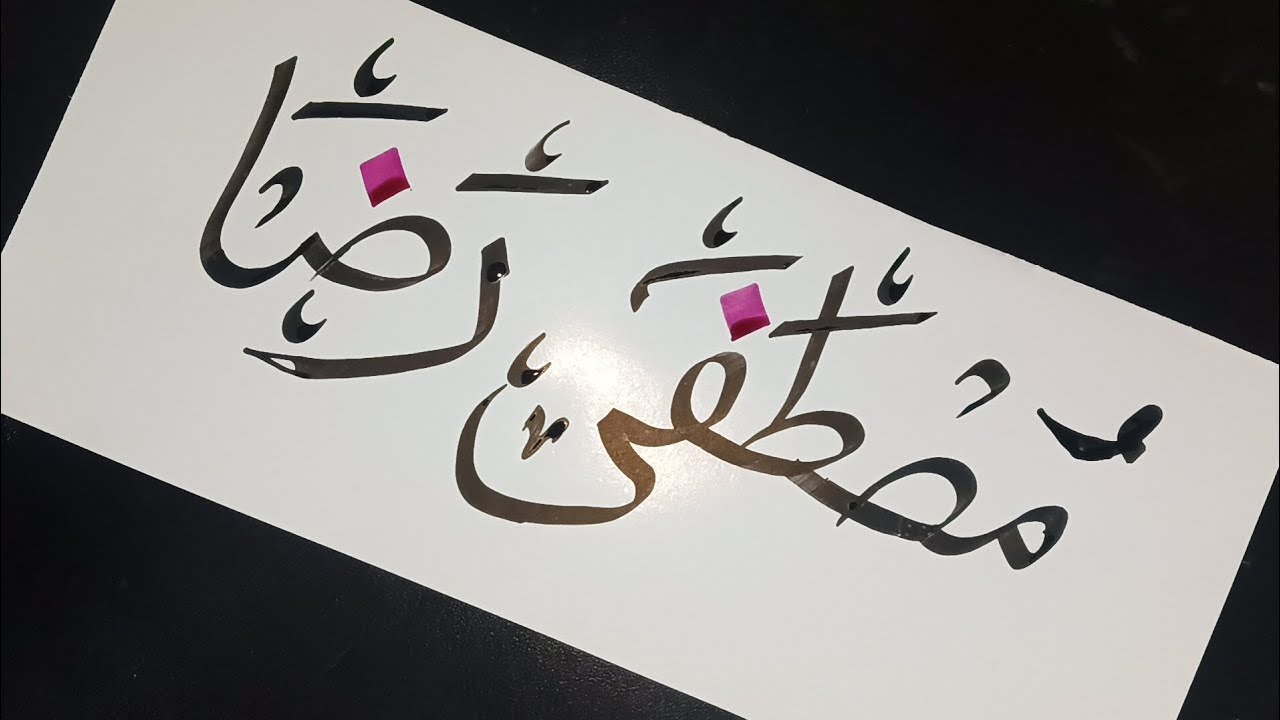 مُصْطَفَىٰ رَضَا